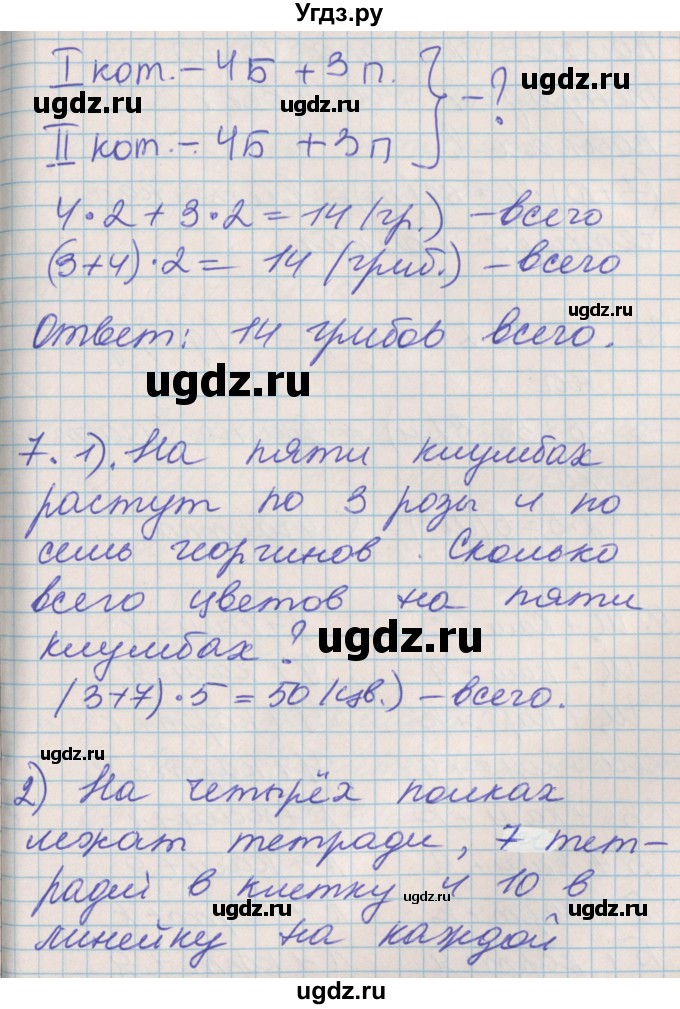 Угдз.ру
I кот. – 4Б + 3п. } – ?
II кот. – 4Б + 3п
4·2 + 3·2 = 14 (гр.) – всего
(3+4)·2 = 14 (гриб.) – всего
Ответ: 14 грибов всего.
7. 1). На пяти клумбах
растут по 3 розы и по
семь георгинов. Сколько
всего цветов на пяти
клумбах?
(3+7)·5 = 50 (цв.) – всего.
2) На четырёх полках
лежат тетради, 7 тет-
радей в клетку и 10 в
линейку на каждой
ugdz.ru
ugdz.ru
ugdz.ru
ugdz.ru
ugdz.ru
ugdz.ru
ugdz.ru
ugdz.ru
ugdz.ru
ugdz.ru
ugdz.ru
ugdz.ru
ugdz.ru